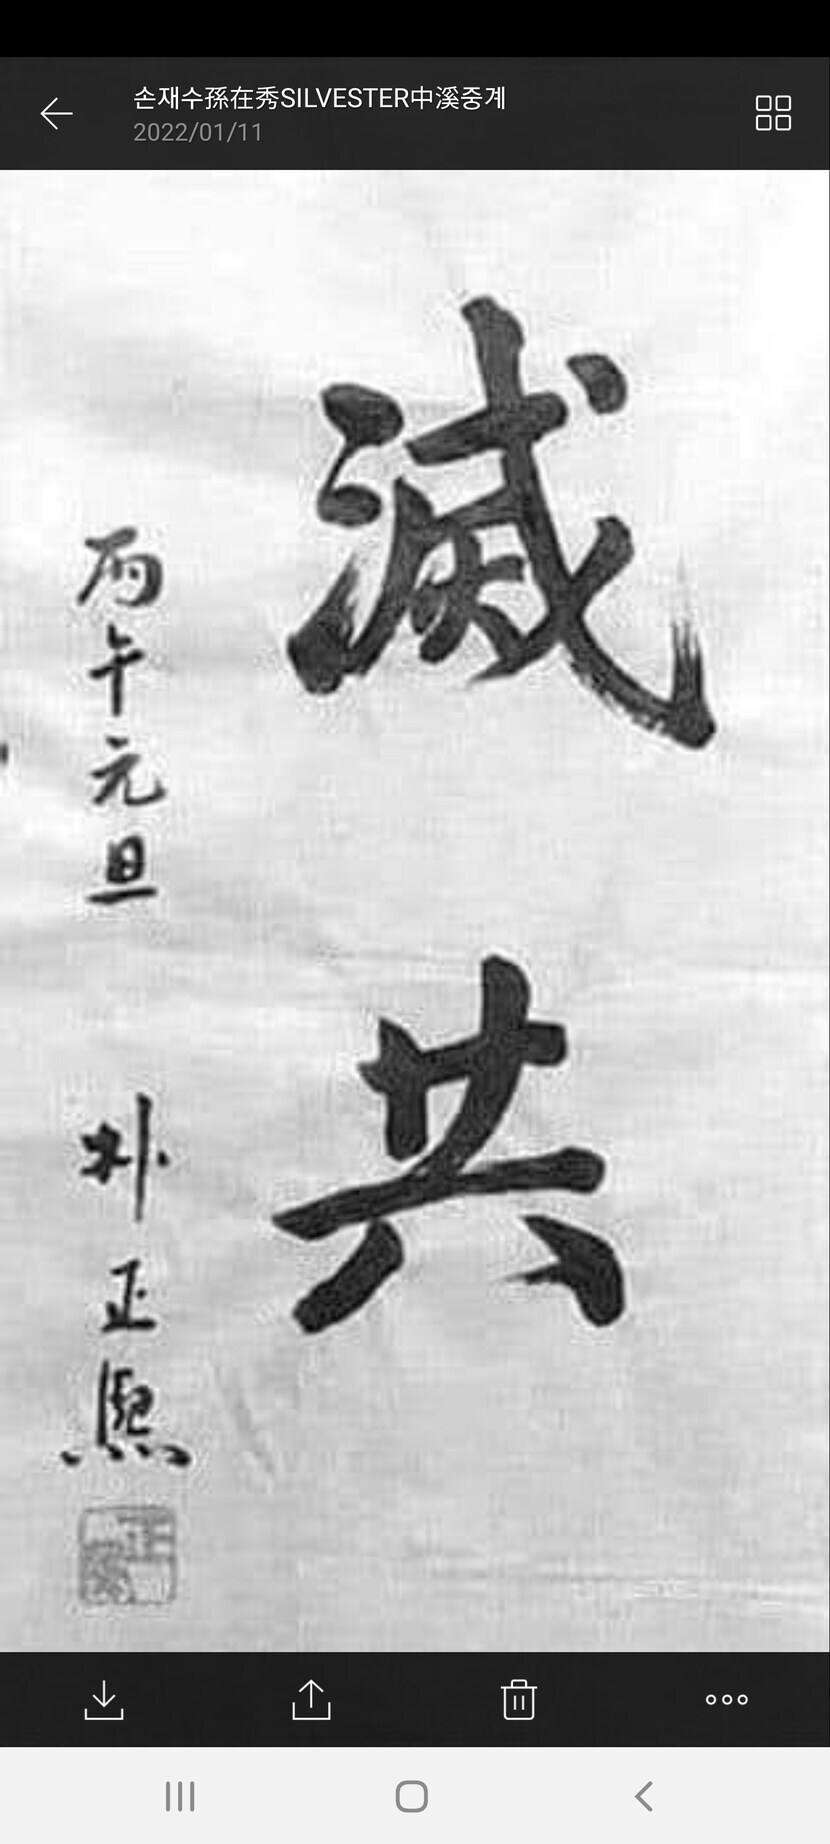 손재수孫在秀SILVESTER中溪중계
2022/01/11
滅共
丙午元旦
朴正熙